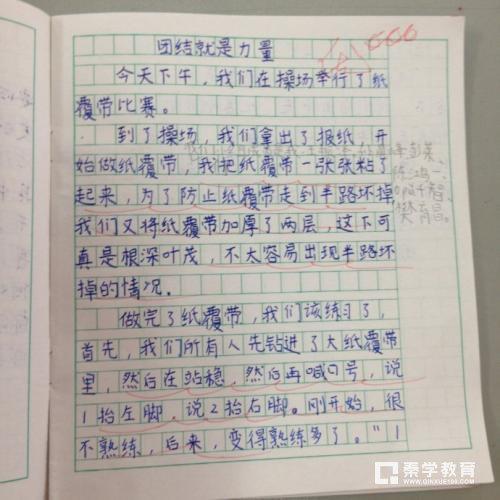 团结就是力量
666
今天下午，我们在操场举行了纸
覆带比赛。
到了操场，我们拿出了报纸，开
始做纸覆带，我把纸覆带一张张粘了
起来，为了防止纸覆带走到半路坏掉
我们又将纸覆带加厚了两层，这下可
真是根深叶茂，不大容易出现半路坏
掉的情况。
做完了纸覆带，我们该练习了，
首先，我们所有人先钻进了大纸覆带
里，然后在站稳，然后再喊口号，说
1抬左脚，说2抬右脚。刚开始，很
不熟练，后来，变得熟练多了。"1
秦学教育
www.qinxue100.com